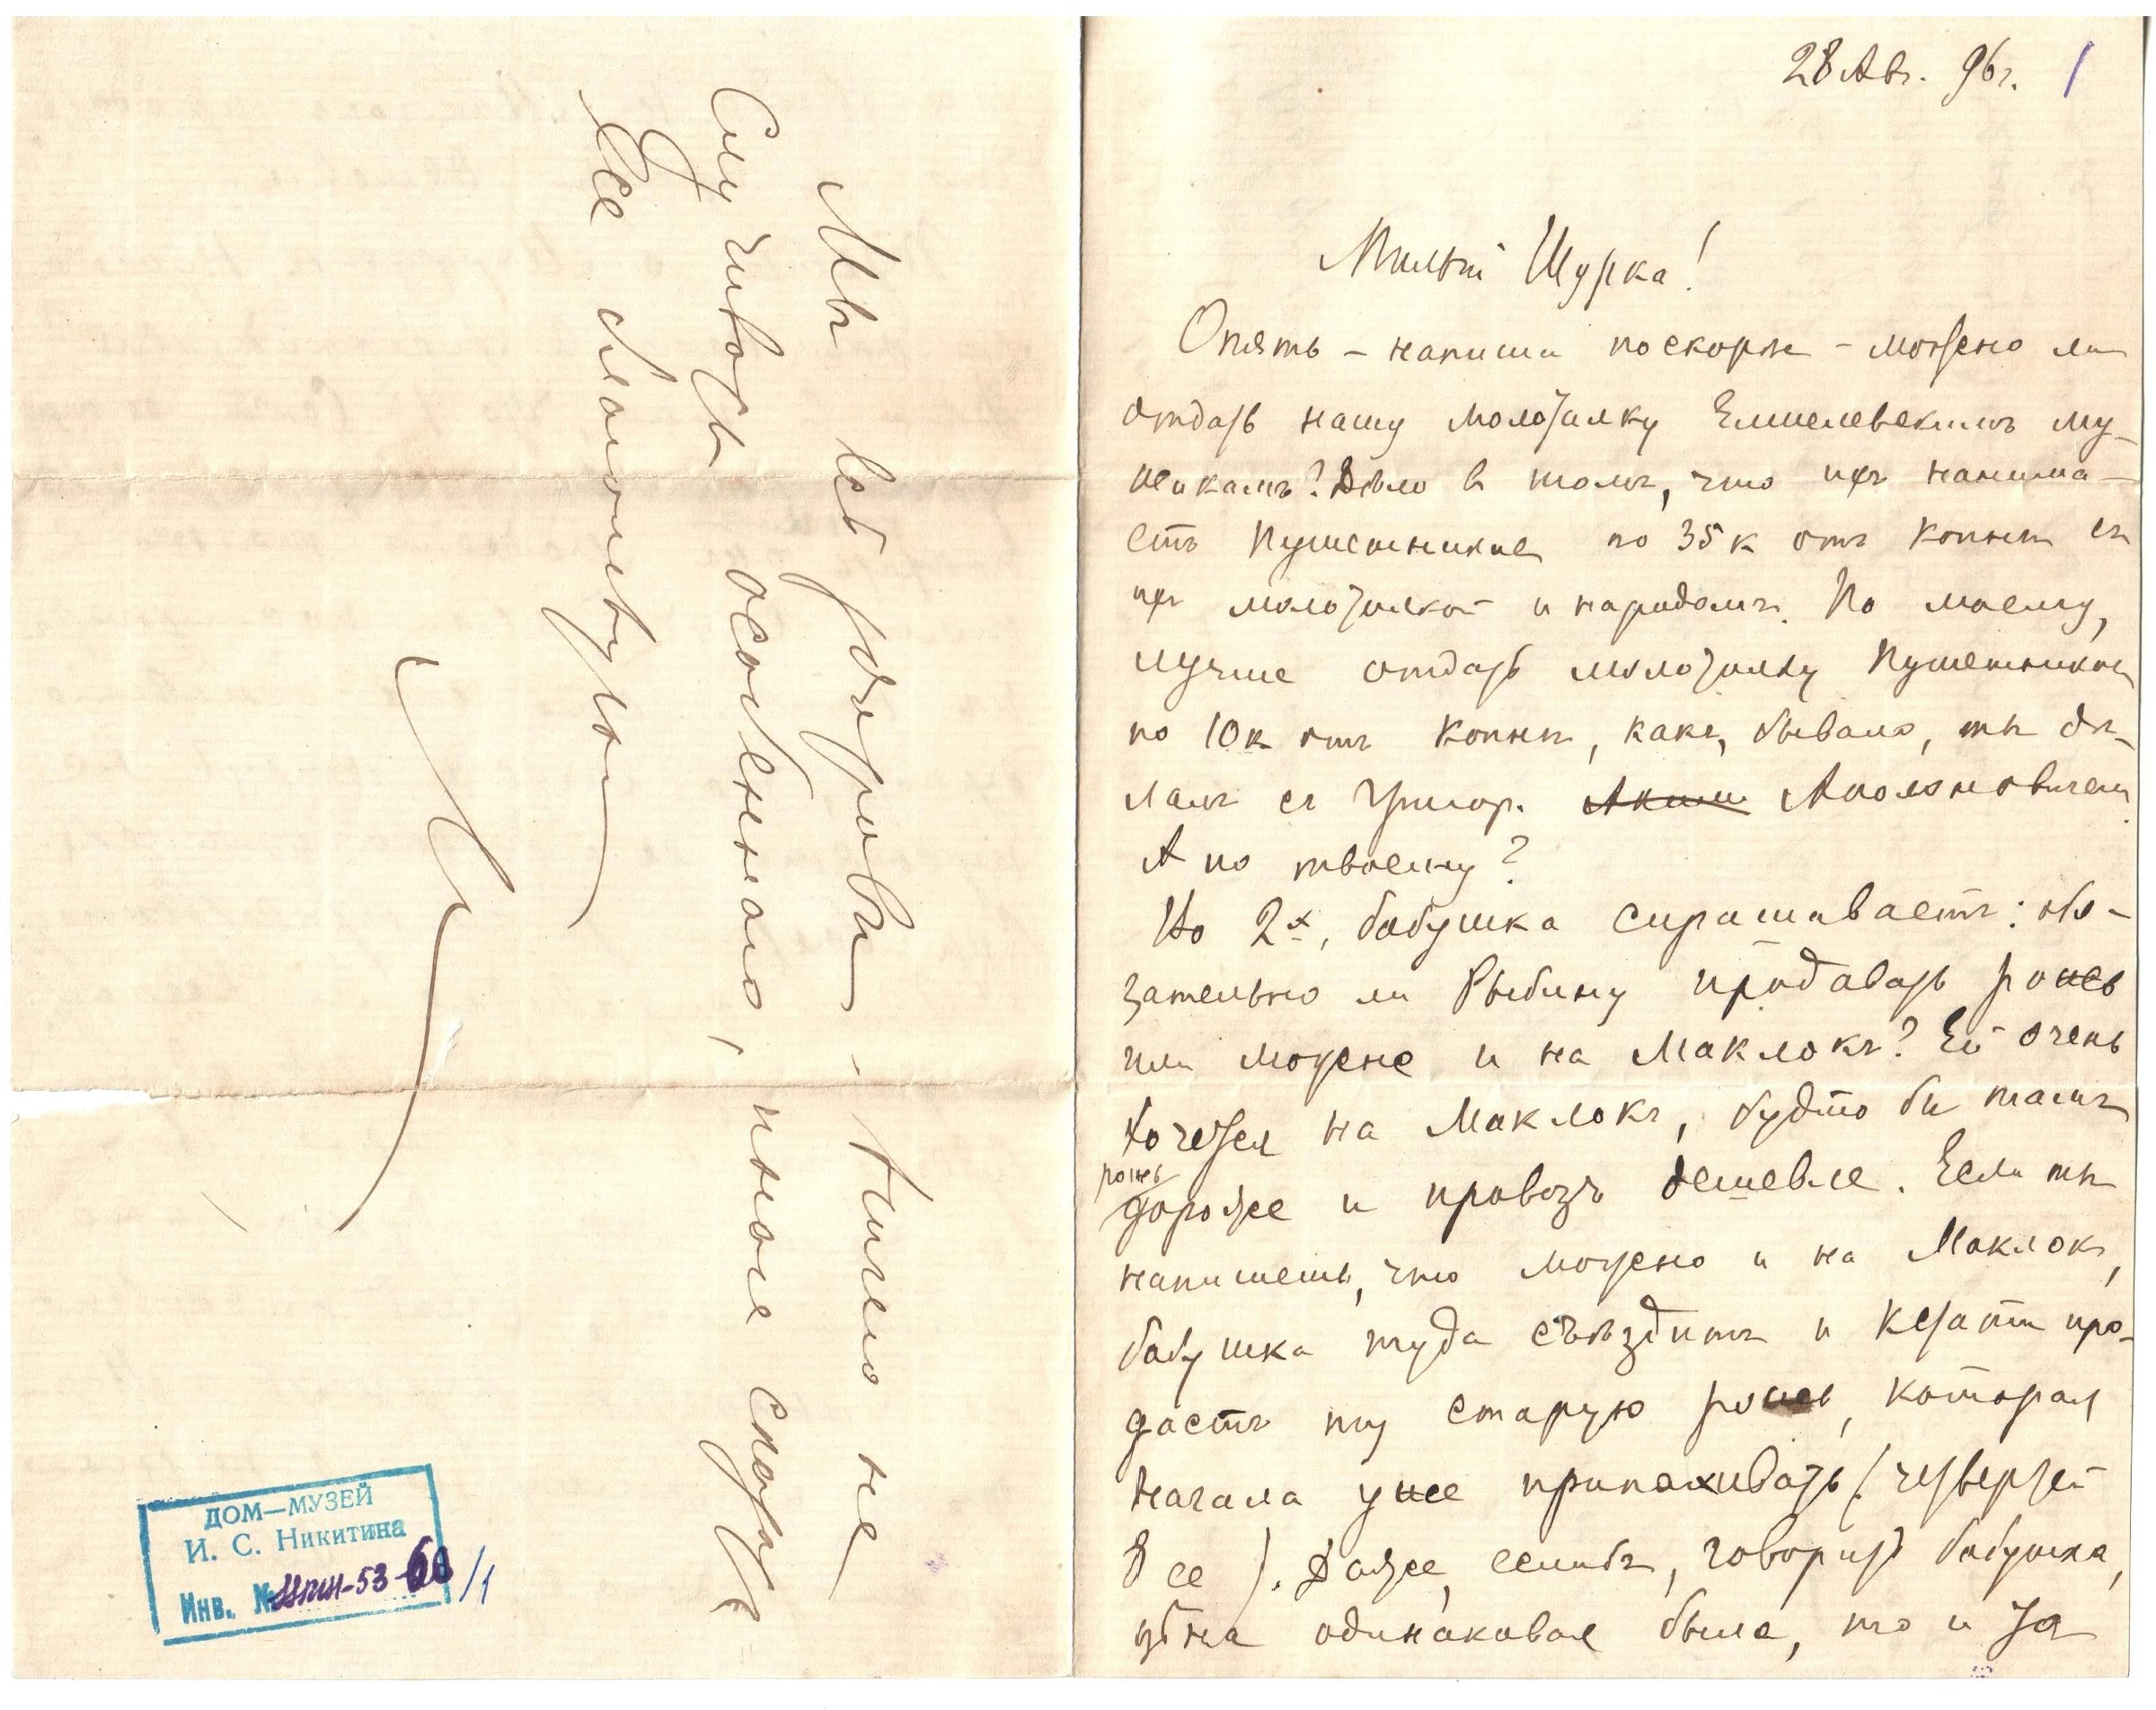 28 Авг. 96 г. 1
Милый Шурка!
Опять – напиши поскорѣе – можно ли
отдать нашу молотилку Емшелевскимъ му-
жикамъ? Дѣло в томъ, что ихъ нанима-
етъ Пушешников по 35 к отъ копны съ
ихъ молотилкой и народомъ. По моему,
лучше отдать молотилку Пушешников
по 10 к отъ копны, какъ, бывало, ты дѣ-
лалъ съ Григор. Аким Аполоновичем.
А по твоему?
Во 2х, бабушка спрашиваетъ: обя-
зательно ли Рыбину продавать рожь
или можно и на Маклокъ? Ей очень
хочется на Маклокъ, будто бы тамъ
рожь
дороже и провозъ дешевле. Если ты
напишешь, что можно и на Маклокъ,
бабушка туда съѣздитъ и кстати про-
дастъ ту старую рожь, которая
начала уже припахивать (четвертей
8 ее). Даже, еслибъ, говоритъ бабушка,
цѣна одинаковая была, то и за
Мы всѣ здоровы, ничего не
случилось особенного, пиши скорѣе
Все благополучно
ДОМ–МУЗЕЙ
И. С. Никитина
Инв. № 53-60/1